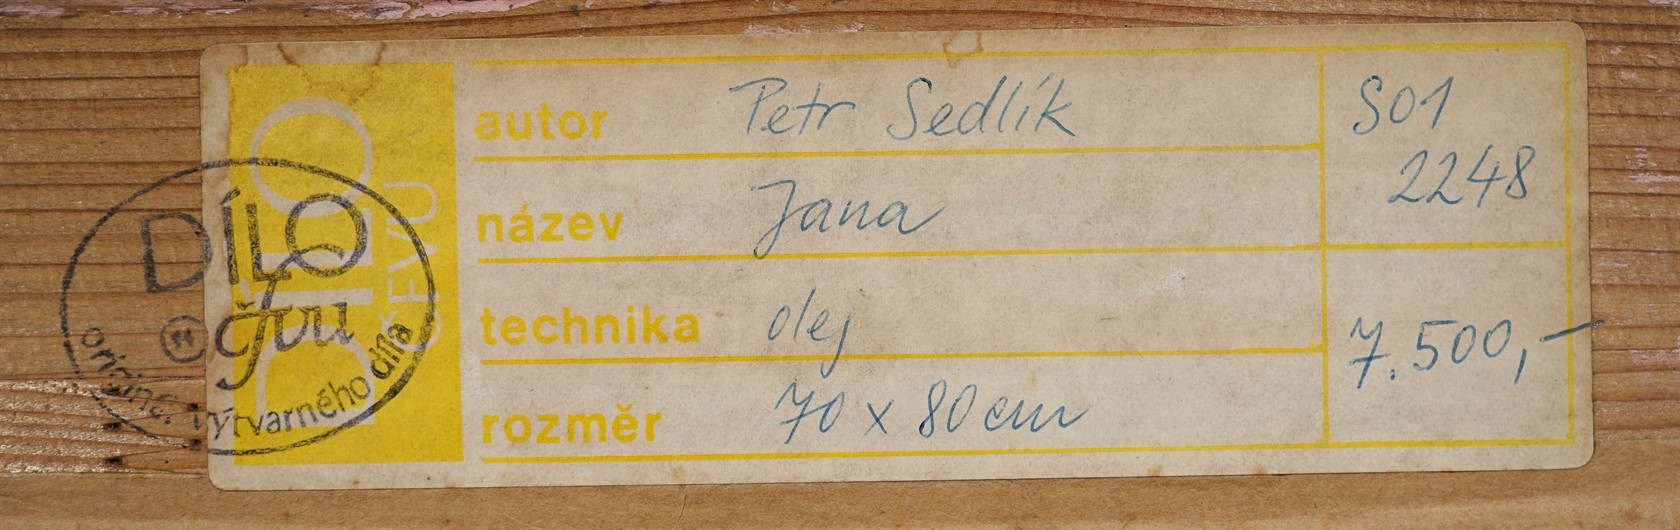 DÍLO
DÍLO
čfvu
originál výtvarného díla
autor Petr Sedlík
název Jana
technika olej
rozměr 70 x 80 cm
S01
2248
7.500,-